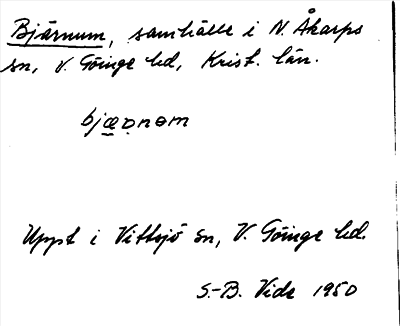 Bjärnum, samhälle i N. Åkarps
sn, V. Göinge hd, Krist. län.
bjæ̠ṇəm
Uppt i Vittsjö sn, V. Göinge hd.
S.-B. Vide 1950